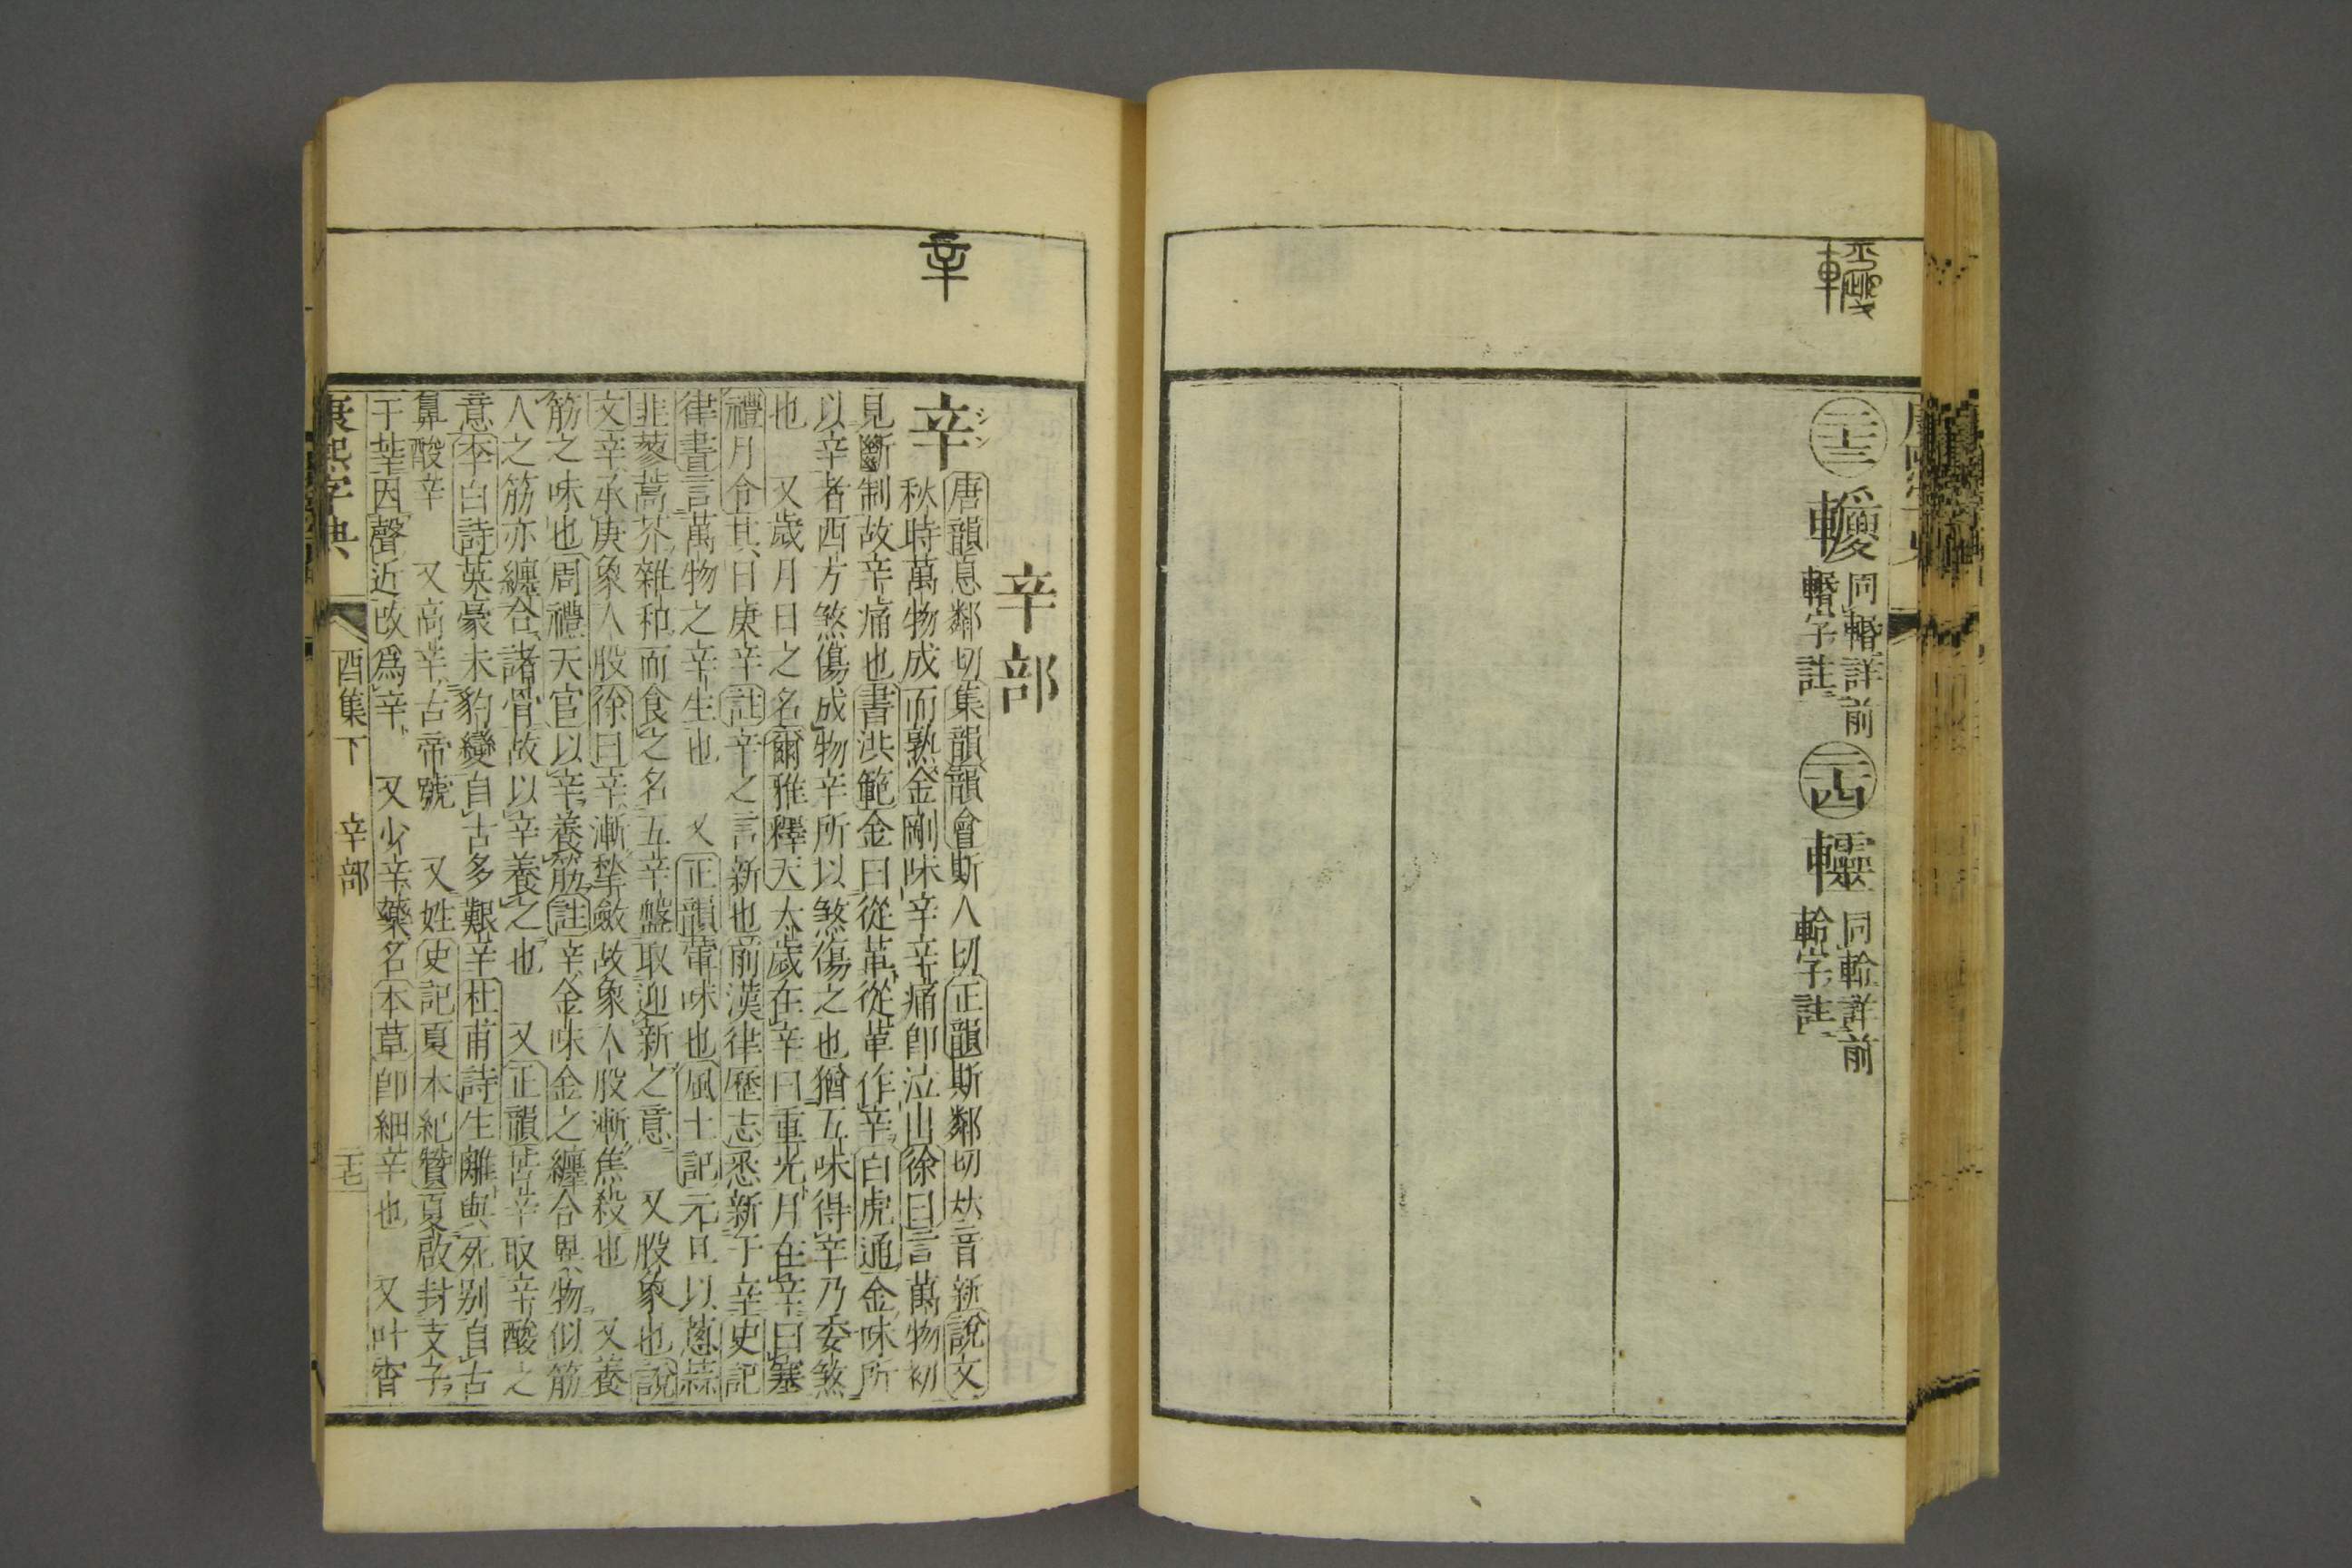 二十三
同 詳前
字註
二十四
同軨詳前
軨字註
辛
辛部
辛 シン
唐韻息鄰切集韻韻會斯人切正韻斯鄰切𠀤音新說文
秋時萬物成而熟金剛味辛辛痛卽泣出徐曰言萬物初
見斷制故辛痛也書洪範金曰從革從革作辛白虎通金味所
以辛者西方煞傷成物辛所以煞傷之也猶五味得辛乃委煞
也 又歲月日之名爾雅釋天太歲在辛曰重光月在辛曰塞
禮月令其日庚辛註辛之言新也前漢律歷志悉新于辛史記
律書言萬物之辛生也 又正韻葷味也風土記元旦以蔥蒜
韭蓼蒿芥雜和而食之名五辛盤取迎新之意 又股象也說
文辛承庚象人股徐曰辛漸揫斂故象人股漸焦殺也 又養
筋之味也周禮天官以辛養筋註辛金味金之纏合異物似筋
人之筋亦纏合諸骨故以辛養之也 又正韻苦辛取辛酸之
意李白詩英豪未豹變自古多艱辛杜甫詩生離與死別自古
鼻酸辛 又高辛古帝號 又姓史記夏本紀贊夏啟封支子
于莘因聲近改爲辛 又少辛藥名本草卽細辛也 又叶
康熙字典 酉集下 辛部